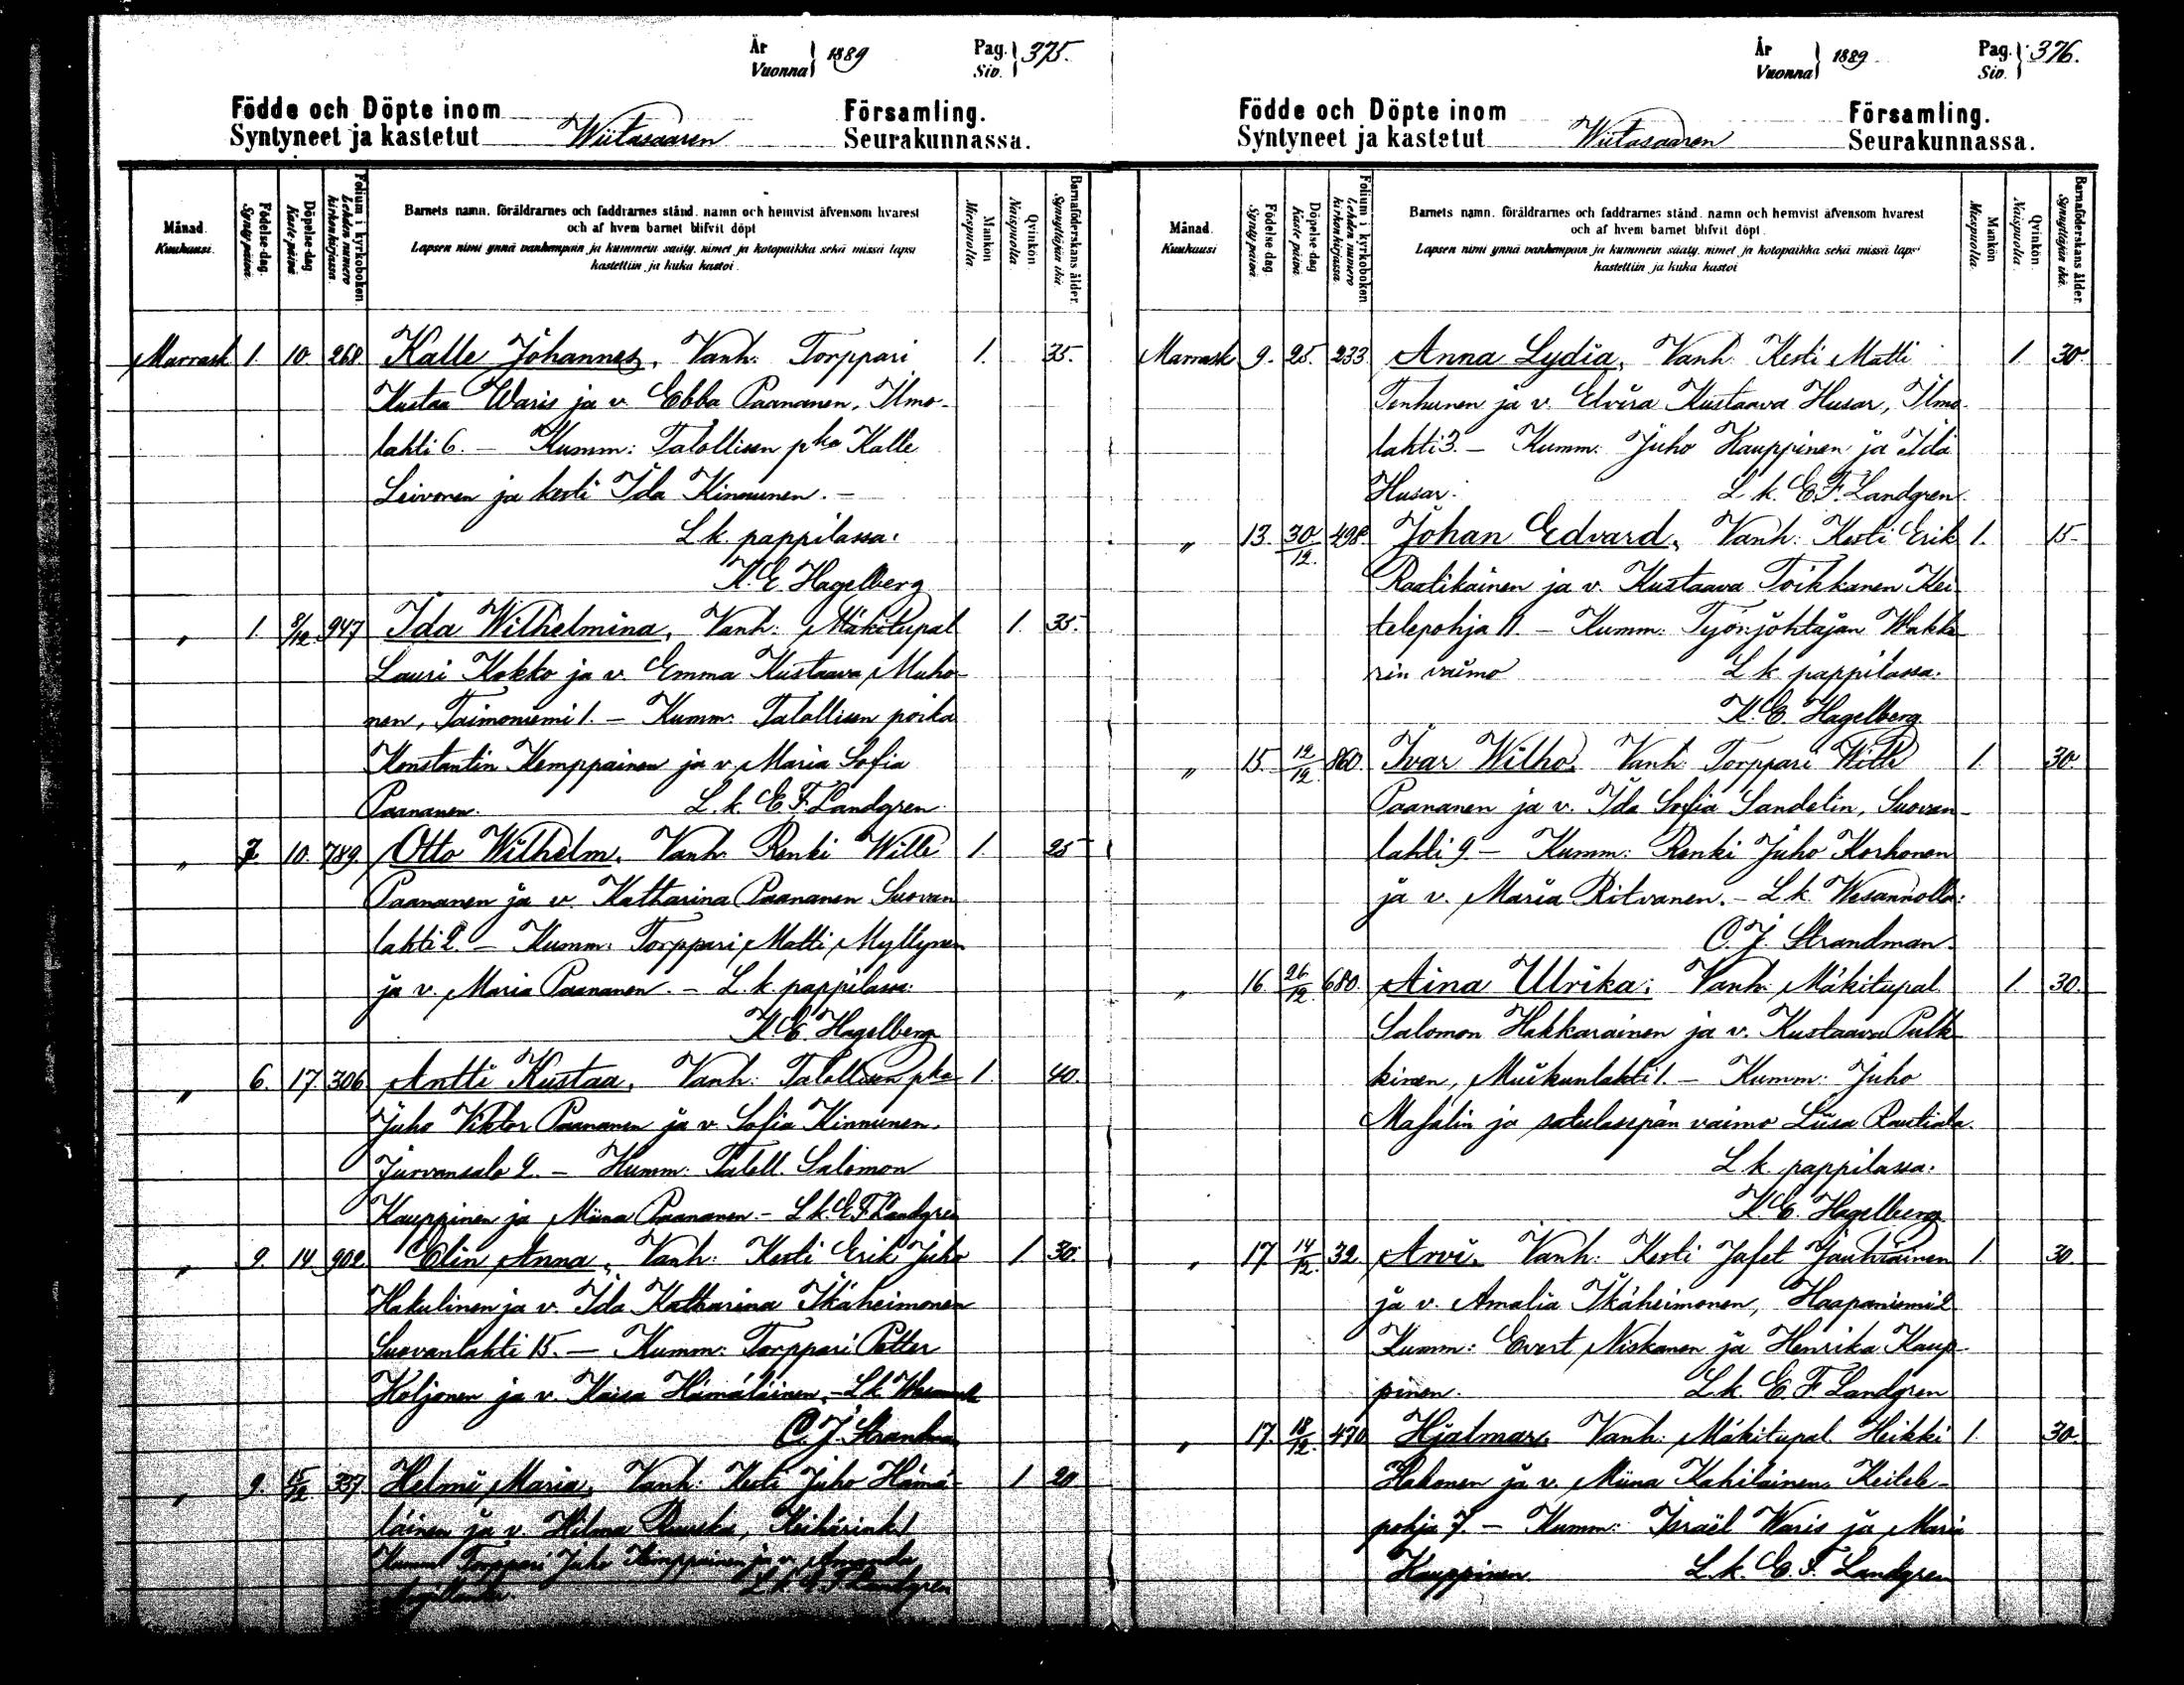 År
Vuonna 1889
Pag.
Siv. 375.
Födde och Döpte inom Församling.
Syntyneet ja kastetut Wiitasaaren Seurakunnassa.
Månad.
Kuukausi.
Födelse-dag.
Syntypäivä.
Döpelse-dag
Kastepäivä
Folium i kyrkoboken.
Lehden numero kirkonkirjassa.
Barnets namn, föräldrarnes och faddrarnes stånd, namn och hemvist äfvensom hvarest
och af hvem barnet blifvit döpt
Lapsen nimi ynnä vanhempain ja kummein sääty, nimet ja kotopaikka sekä missä lapsi
kastettiin ja kuka kastoi.
Mankön
Miespuolta.
Qvinkön
Naispuolta.
Barnaföderskans ålder.
Synnyttäjän ikä.
Marrask 1. 10. 268 Kalle Johannes, Vanh: Torppari 1. 35.
Kustaa Waris ja v. Ebba Paananen, Ilmo-
lahti 6. – Kumm: Talollisen pka Kalle
Leivonen ja kesti Ida Kinnunen. –
L. k. pappilassa:
K. E. Hagelberg
" 1. 8/12. 947 Ida Wilhelmina, Vanh: Mäkitupal 1. 35.
Lauri Kokko ja v. Emma Kustaava Muho-
nen, Taimoniemi 1. – Kumm: Talollisen poika
Konstantin Kemppainen ja v. Maria Sofia
Paananen. L. k. E. F. Landgren.
" 7. 10. 789. Otto Wilhelm, Vanh: Renki Wille 1. 25
Paananen ja v. Katharina Paananen Suovan
lahti 2. – Kumm: Torppari Matti Myllynen
ja v. Maria Paananen. – L. k. pappilassa:
K. E. Hagelberg
" 6. 17. 306 Antti Kustaa, Vanh: Talollisen pka 1. 40.
Juho Viktor Paananen ja v. Sofia Kinnunen.
Jurvansalo 2. – Kumm: Taloll. Salomon
Kauppinen ja Miina Paananen. – L. k. E. F. Landgren
" 9. 14. 902. Elin Anna, Vanh: Kesti Erik Juho 1. 30.
Hakulinen ja v. Ida Katharina Ikäheimonen
Suovanlahti 15. – Kumm: Torppari Petter
Koljonen ja v. Kaisa Hämäläinen. – L. k.
C. J. Strandman
" 9. 15/12. 337 Helmi Maria, Vanh: Kesti Juho Hämä- 1 20
läinen ja v. Hilma Ruuska, Keihärink. 1
Kumm: Torppari Juho Kimppainen ja v. Amanda
L. k. E. F. Landgren
År
Vuonna 1889
Pag.
Siv. 376.
Födde och Döpte inom Församling.
Syntyneet ja kastetut Wiitasaaren Seurakunnassa.
Månad.
Kuukausi
Födelse dag
Syntypäivä.
Döpelse-dag
Kastepäivä.
Folium i kyrkoboken
Lehden numero kirkonkirjassa.
Barnets namn, föräldrarnes och faddrarnes stånd, namn och hemvist äfvensom hvarest
och af hvem barnet blifvit döpt.
Lapsen nimi ynnä vanhempain ja kummein sääty, nimet ja kotopaikka sekä missä lapsi
kastettiin ja kuka kastoi
Mankön
Miespuolta.
Qvinkön.
Naispuolta.
Barnaföderskans ålder.
Synnyttäjän ikä.
Marrask 9. 25. 233 Anna Lydia, Vanh: Kesti Matti 1. 30.
Tenhunen ja v. Elvira Kustaava Husar, Ilmo-
lahti 3. – Kumm: Juho Kauppinen ja Ida
Husar. L. k. E. F. Landgren.
" 13. 30/12. 498. Johan Edvard, Vanh: Kesti Erik 1. 15.
Raatikainen ja v. Kustaava Toikkanen Kei-
telepohja 11. – Kumm: Työnjohtajan Wakka-
rin vaimo L. k. pappilassa:
K. E. Hagelberg.
" 15. 12/12. 860. Ivar Wilho, Vanh: Torppari Wille 1. 30.
Paananen ja v. Ida Sofia Sandelin, Suovan-
lahti 9. – Kumm: Renki Juho Korhonen
ja v. Maria Ritvanen. – L. k. Wesannolla:
C. J. Strandman.
" 16. 26/12. 680. Aina Ulrika, Vanh: Mäkitupal. 1. 30.
Salomon Hakkarainen ja v. Kustaava Pulk-
kinen, Muikunlahti 1. – Kumm: Juho
Mafalin ja satulasepän vaimo Liisa Rautiala.
L. k. pappilassa:
K. E. Hagelberg.
" 17. 14/12. 32. Arvi, Vanh: Kesti Jafet Jauhiainen 1. 30
ja v. Amalia Ikäheimonen, Haapaniemi 2
Kumm: Evert Niskanen ja Henrika Kaup-
pinen. L. k. E. F. Landgren
" 17. 18/12. 470 Hjalmar, Vanh: Mäkitupal. Heikki 1. 30.
Hakonen ja v. Miina Kahilainen, Keitele-
pohja 7. – Kumm: Israël Waris ja Maria
Kauppinen. L. k. E. F. Landgren